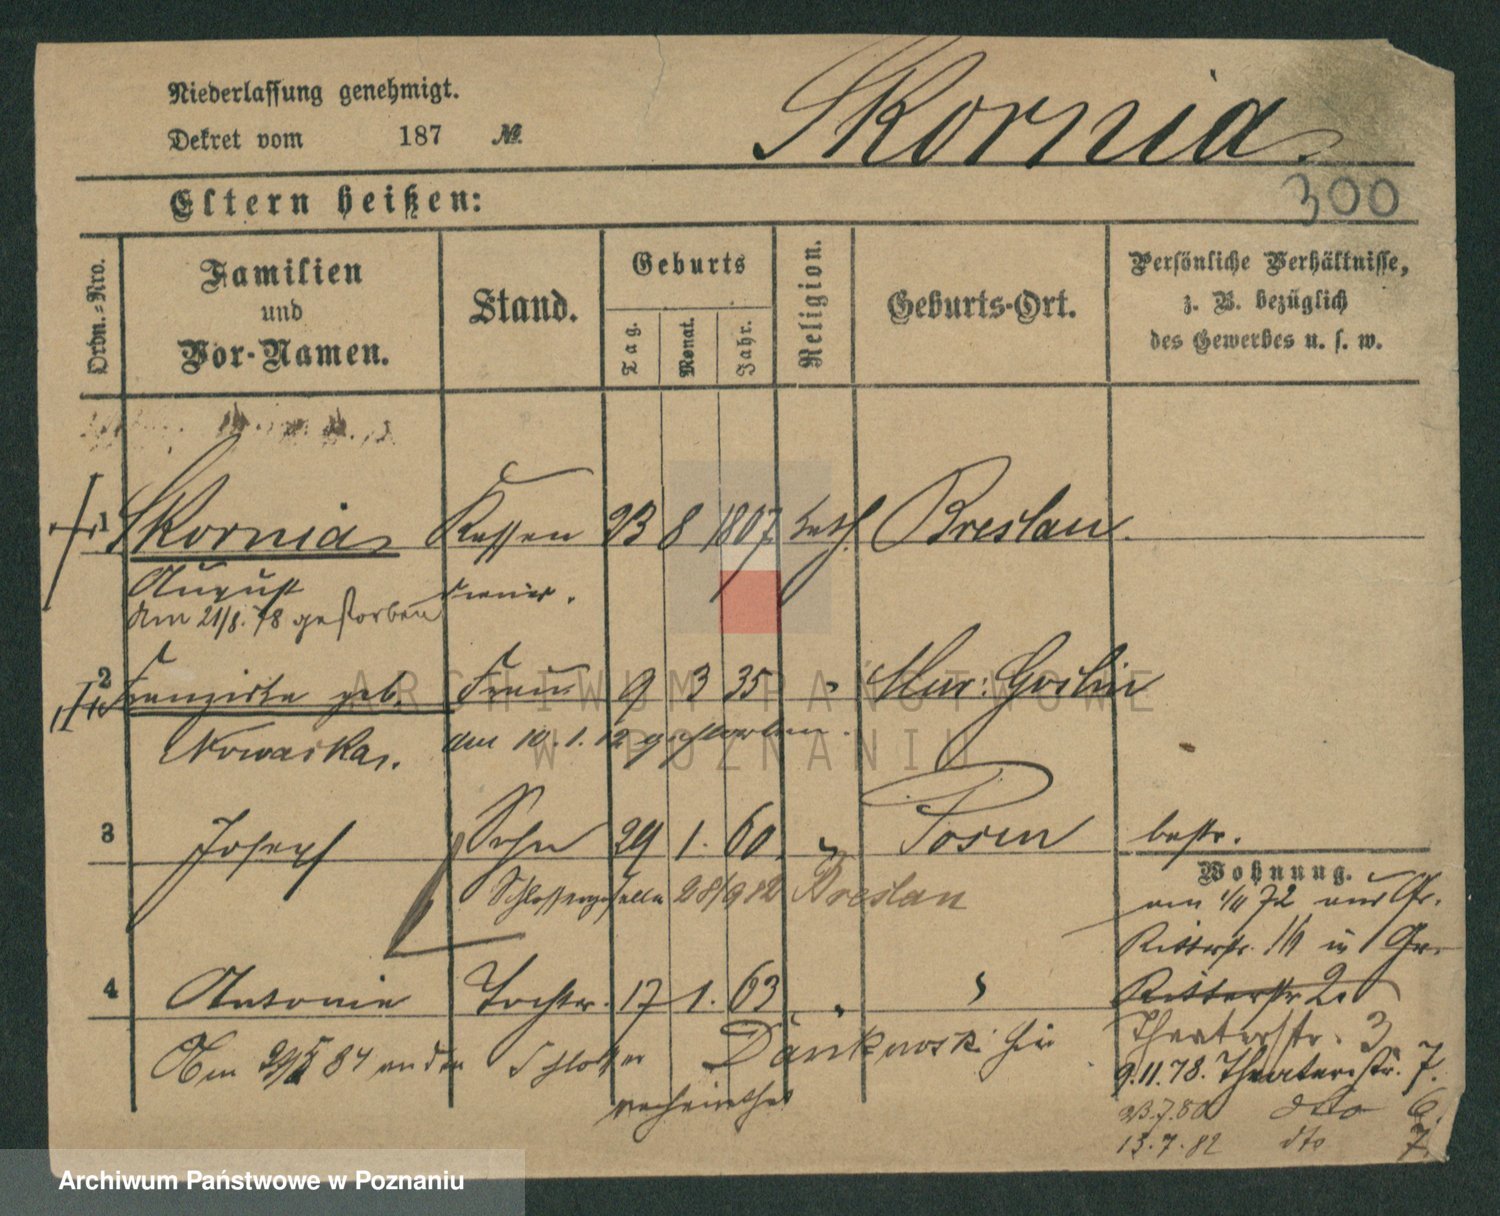 Niederlassung genehmigt.
Dekret vom 187 No.
Skornia
300
Eltern heißen:
Ordn.=Nro.
Familien
und
Vor-Namen.
Stand.
Geburts
Tag.
Monat.
Jahr.
Religion.
Geburts-Ort.
Persönliche Verhältnisse,
z. B. bezüglich
des Gewerbes u. s. w.
1 Skornia Kassen 23 8 1807 kath. Breslau.
August diener.
Am 21/8. 78 gestorben
2 Franziska geb. Frau 9 3 35 " Mur: Goslin
Nowaska. am 10.1.12 gestorben.
3 Joseph Sohn 29 1. 60. " Posen bestr.
Wohnung.
Schlossergeselle 28/9 82 Breslau
am 1/4 72 aus Gr.
Ritterstr. in Gr.
4 Antonie Tochter. 17 1. 63 " "
Ritterstr. 2.
Theaterstr. 3.
Am 84 an den Schlosser Dankowski hier
verheirathet
9.11.78. Theaterstr. 7.
23.7.80 dto 6.
13.7.82 dto 7.
ARCHIWUM PAŃSTWOWE
W POZNANIU
Archiwum Państwowe w Poznaniu